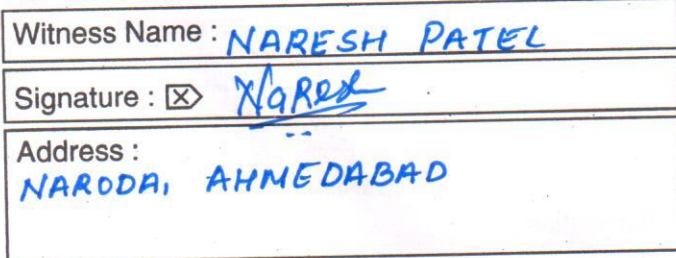 Witness Name : NARESH PATEL
Signature : Naresh
Address :
NARODA, AHMEDABAD